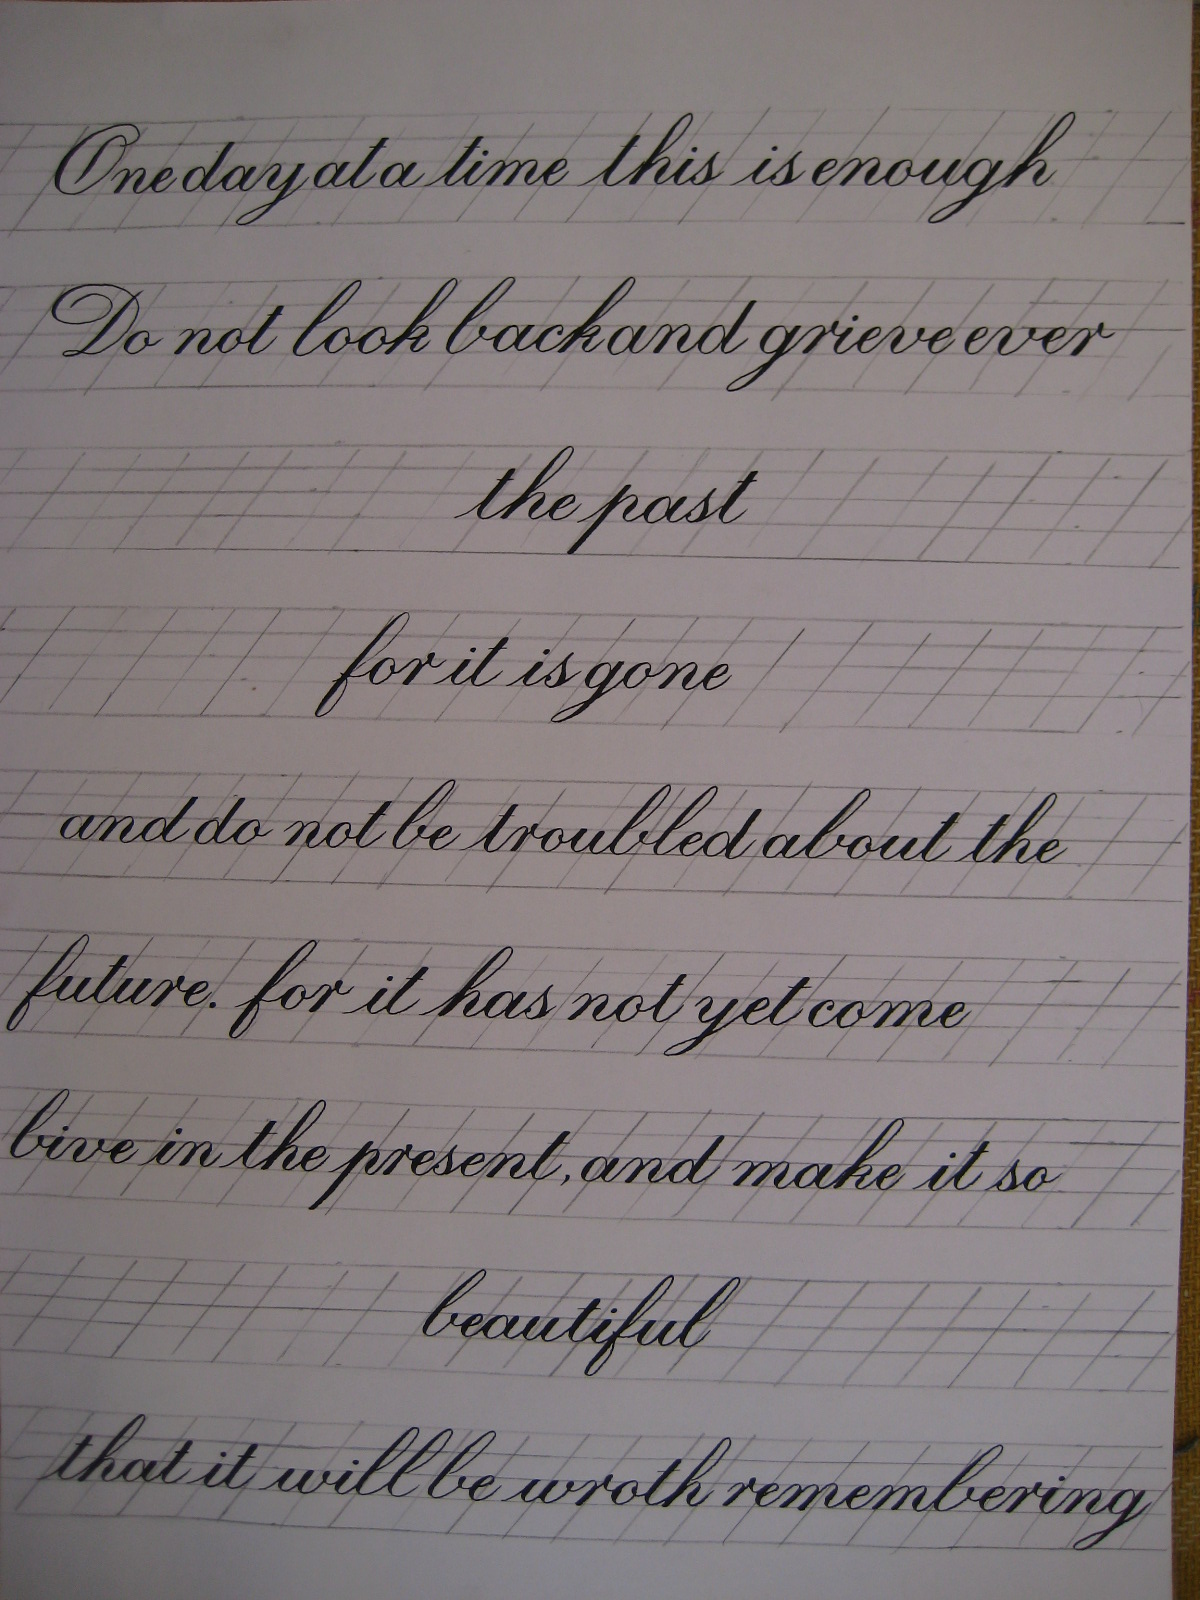 One day at a time this is enough
Do not look back and grieve ever
the past
for it is gone
and do not be troubled about the
future. for it has not yet come
bive in the present, and make it so
beautiful
that it will be wroth remembering